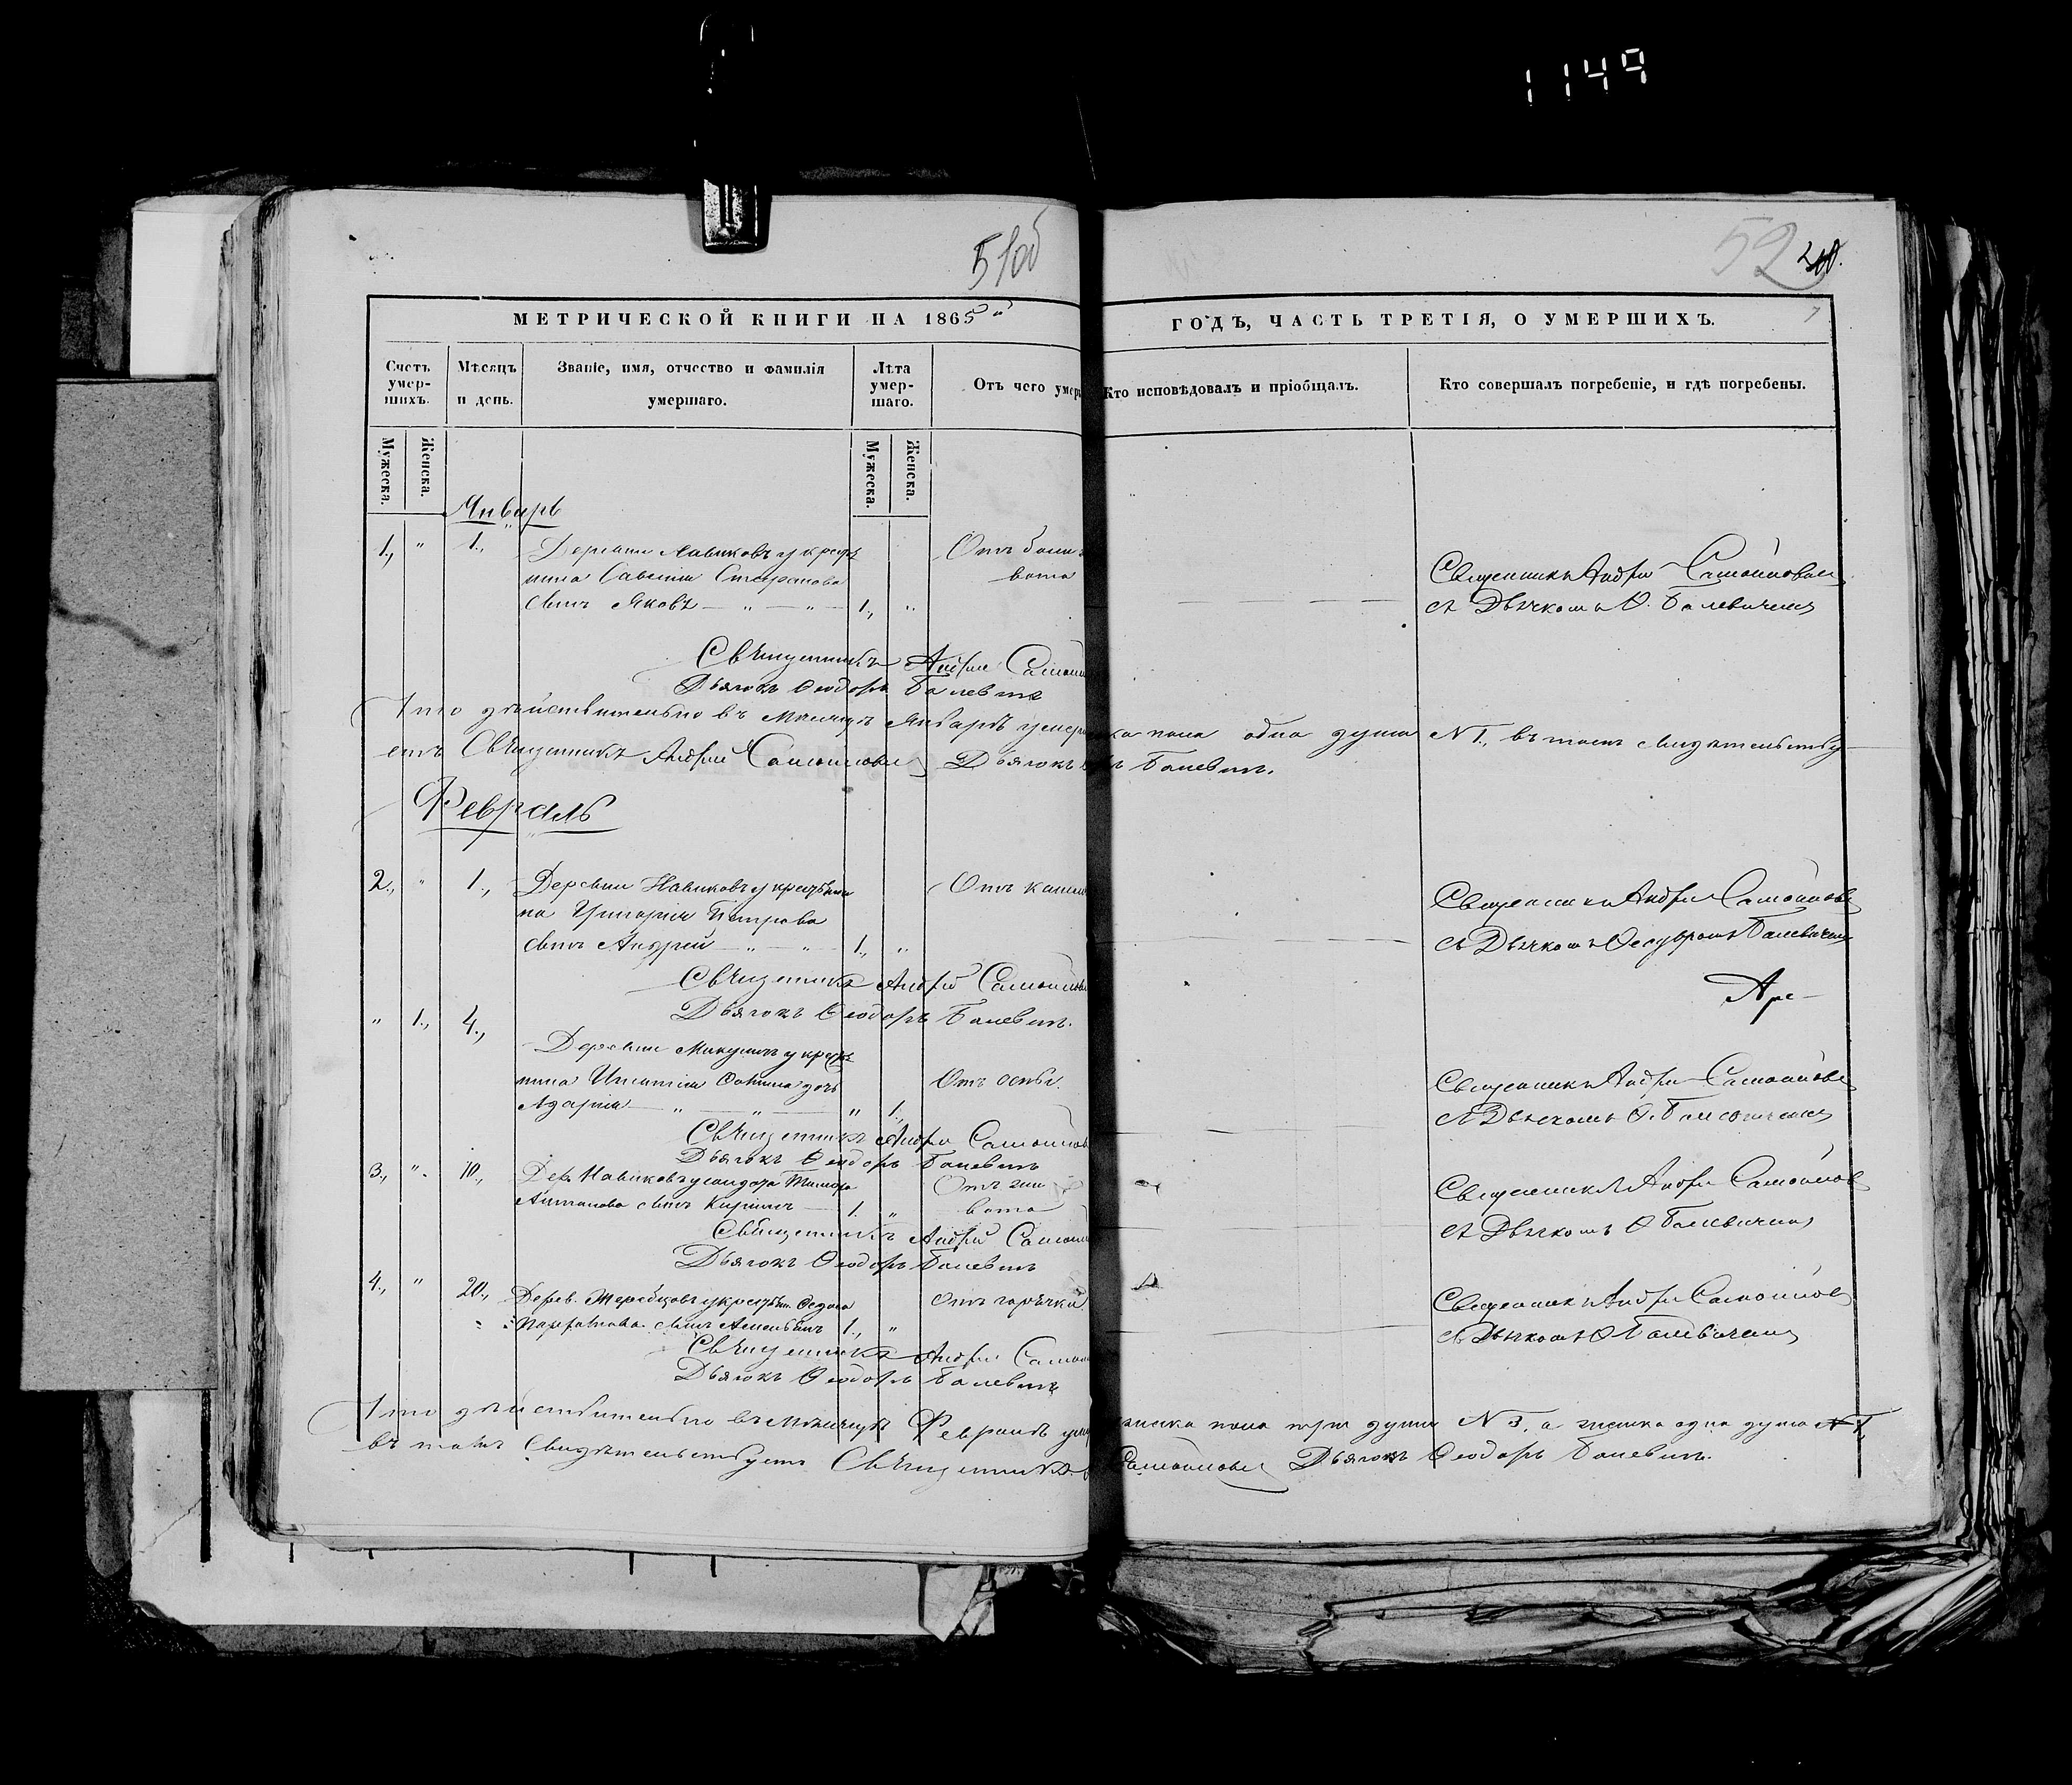 1149
51об
52
МЕТРИЧЕСКОЙ КНИГИ НА 1865
ГОДЪ, ЧАСТЬ ТРЕТІЯ, О УМЕРШИХЪ.
Счетъ умер-
шихъ.
Мѣсяцъ
и день.
Званіе, имя, отчество и фамилія
умершаго.
Лѣта
умер-
шаго.
Отъ чего умер
Кто исповѣдовалъ и пріобщалъ.
Кто совершалъ погребеніе, и гдѣ погребены.
Мужеска.
Женска.
Мужеска.
Женска.
Январь
1., " 1., Деревни у крестья
нина Савелія Стефанова
сынъ Яковъ — " — " — 1., "
Отъ
вота
Священникъ Андрей Самойлович
съ Дьячкомъ Ѳ. Балевичемъ
Священникъ Андрей Самой
Дьячокъ Ѳеодоръ Балевичъ
Что дѣйствительно въ мѣсяцѣ Январѣ умер ка пола одна душа N 1., въ томъ свидѣтельству-
етъ Священникъ Андрей Самойлович Дьячокъ Балевичъ.
Февраль
2., " 1., Деревни Новиковъ у крестьяни
на Григорія Петрова
сынъ Андрей — " — " — 1., "
Отъ кашл
Священникъ Андрей Самойлов
съ Дьячкомъ Ѳеодоромъ Балевичемъ
Священникъ Андрей Самойлов
Дьячокъ Ѳеодоръ Балевичъ.
Аре-
" 1., 4., Деревни у крестья
нина Игнатія дочь
— " — " — " 1.,
Отъ оспы.
Священникъ Андрей Самойлов
съ Дьячкомъ Ѳ. Балевичемъ
Священникъ Андрей Самойлов
Дьячокъ Ѳеодоръ Балевичъ
3., " 10., Дер. Новиковъ у солдата
Антонова сынъ — 1. "
Отъ жи
вота
Священникъ Андрей Самойлов
съ Дьячкомъ Ѳ Балевичемъ
Священникъ Андрей Самой
Дьячокъ Ѳеодоръ Балевичъ
4., " 20., Дерев. Жеребцовъ у крестьян.
сынъ 1., "
Отъ горячки
Священникъ Андрей Самойлов
съ Дьячкомъ Ѳ Балевичемъ
Священникъ Андрей Самой
Дьячокъ Ѳеодоръ Балевичъ
Что дѣйствительно въ мѣсяцѣ Февралѣ умер жеска пола три души N 3. а женска одна душа N 1.,
въ томъ свидѣтельствуетъ Священникъ Самойлович Дьячокъ Ѳеодоръ Балевичъ.